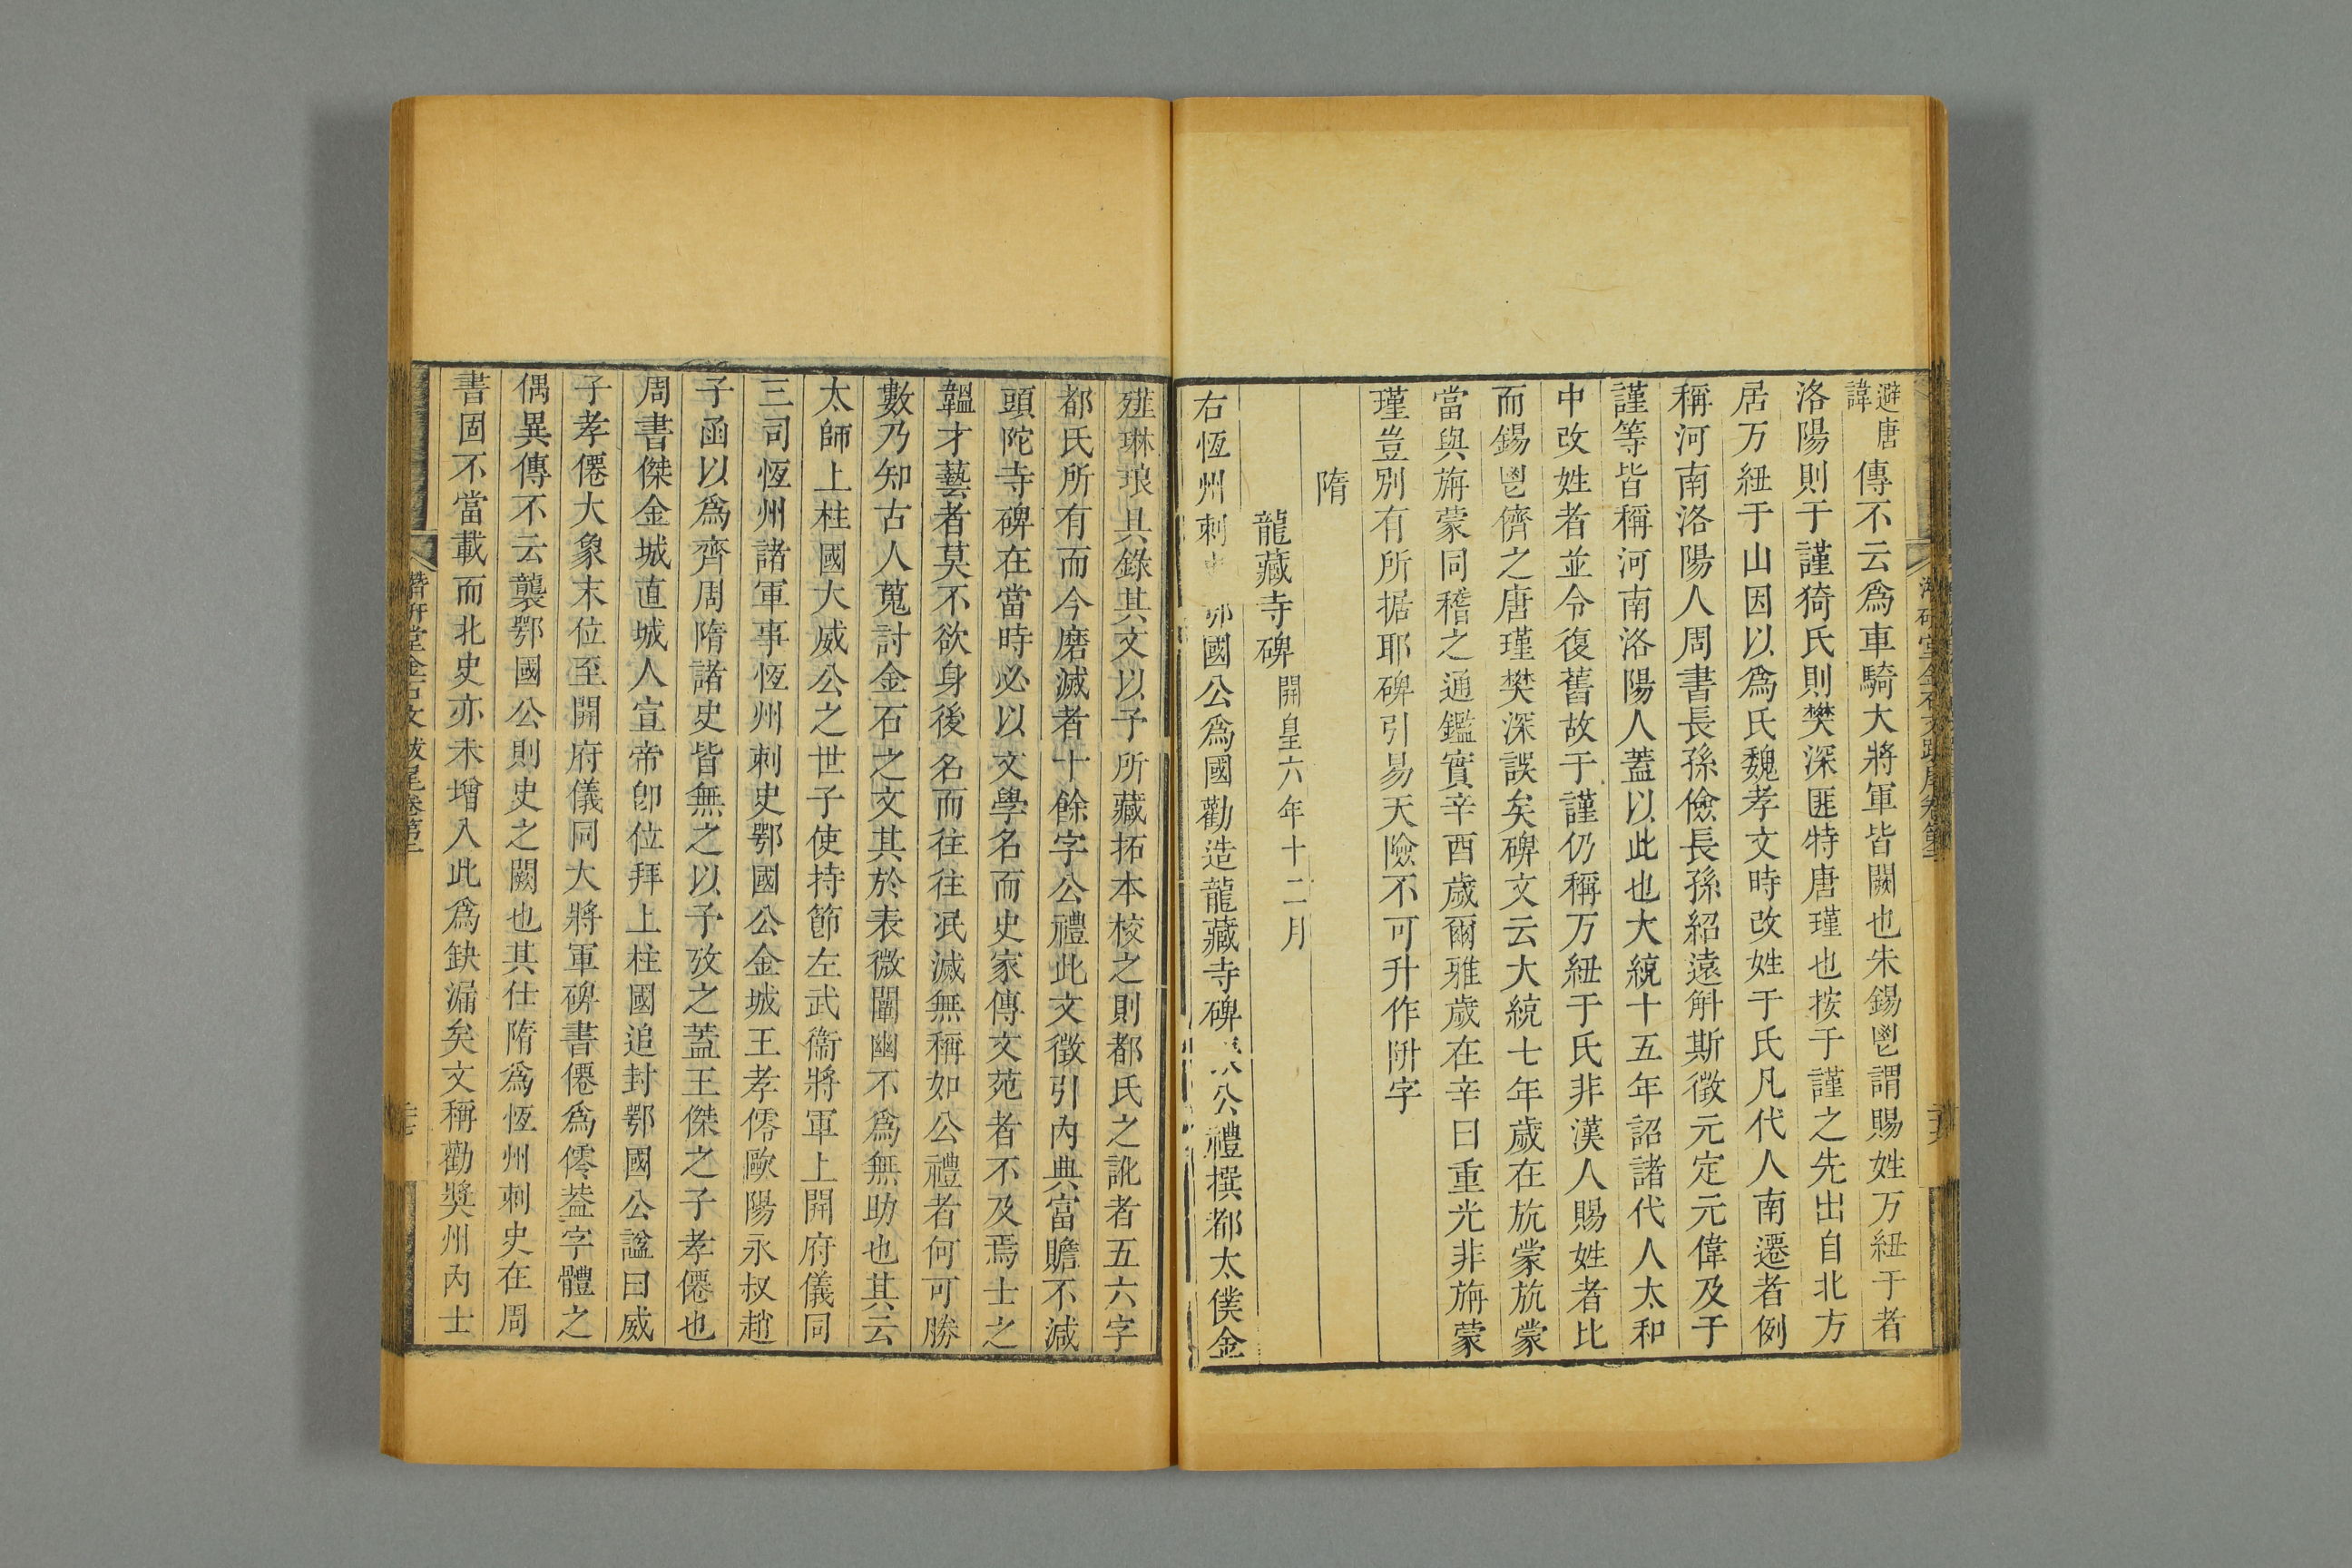 避唐諱傳不云爲車騎大將軍皆闕也朱錫鬯謂賜姓万紐于者
洛陽則于謹猗氏則樊深匪特唐瑾也按于謹之先出自北方
居万紐于山因以爲氏魏孝文時改姓于氏凡代人南遷者例
稱河南洛陽人周書長孫儉長孫紹遠斛斯徵元定元偉及于
謹等皆稱河南洛陽人蓋以此也大統十五年詔諸代人太和
中改姓者並令復舊故于謹仍稱万紐于氏非漢人賜姓者比
而錫鬯儕之唐瑾樊深誤矣碑文云大統七年歲在旃蒙旃蒙
當與旃蒙同稽之通鑑實辛酉歲爾雅歲在辛曰重光非旃蒙
瑾豈別有所据耶碑引易天險不可升作阩字
隋
龍藏寺碑 開皇六年十二月
右恆州刺 鄂國公爲國勸造龍藏寺碑 公禮撰都太僕金
薤琳琅具錄其文以予所藏拓本校之則都氏之訛者五六字
都氏所有而今磨滅者十餘字公禮此文徵引內典富贍不減
頭陀寺碑在當時必以文學名而史家傳文苑者不及焉士之
韞才藝者莫不欲身後名而往往泯滅無稱如公禮者何可勝
數乃知古人蒐討金石之文其於表微闡幽不爲無助也其云
太師上柱國大威公之世子使持節左武衞將軍上開府儀同
三司恆州諸軍事恆州刺史鄂國公金城王孝僊歐陽永叔趙
子函以爲齊周隋諸史皆無之以予攷之蓋王傑之子孝僊也
周書傑金城直城人宣帝卽位拜上柱國追封鄂國公諡曰威
子孝僊大象末位至開府儀同大將軍碑書僊爲僊葢字體之
偶異傳不云襲鄂國公則史之闕也其仕隋爲恆州刺史在周
書固不當載而北史亦未增入此爲缺漏矣文稱勸奬州內士
潛硏堂金石文跋尾卷第三